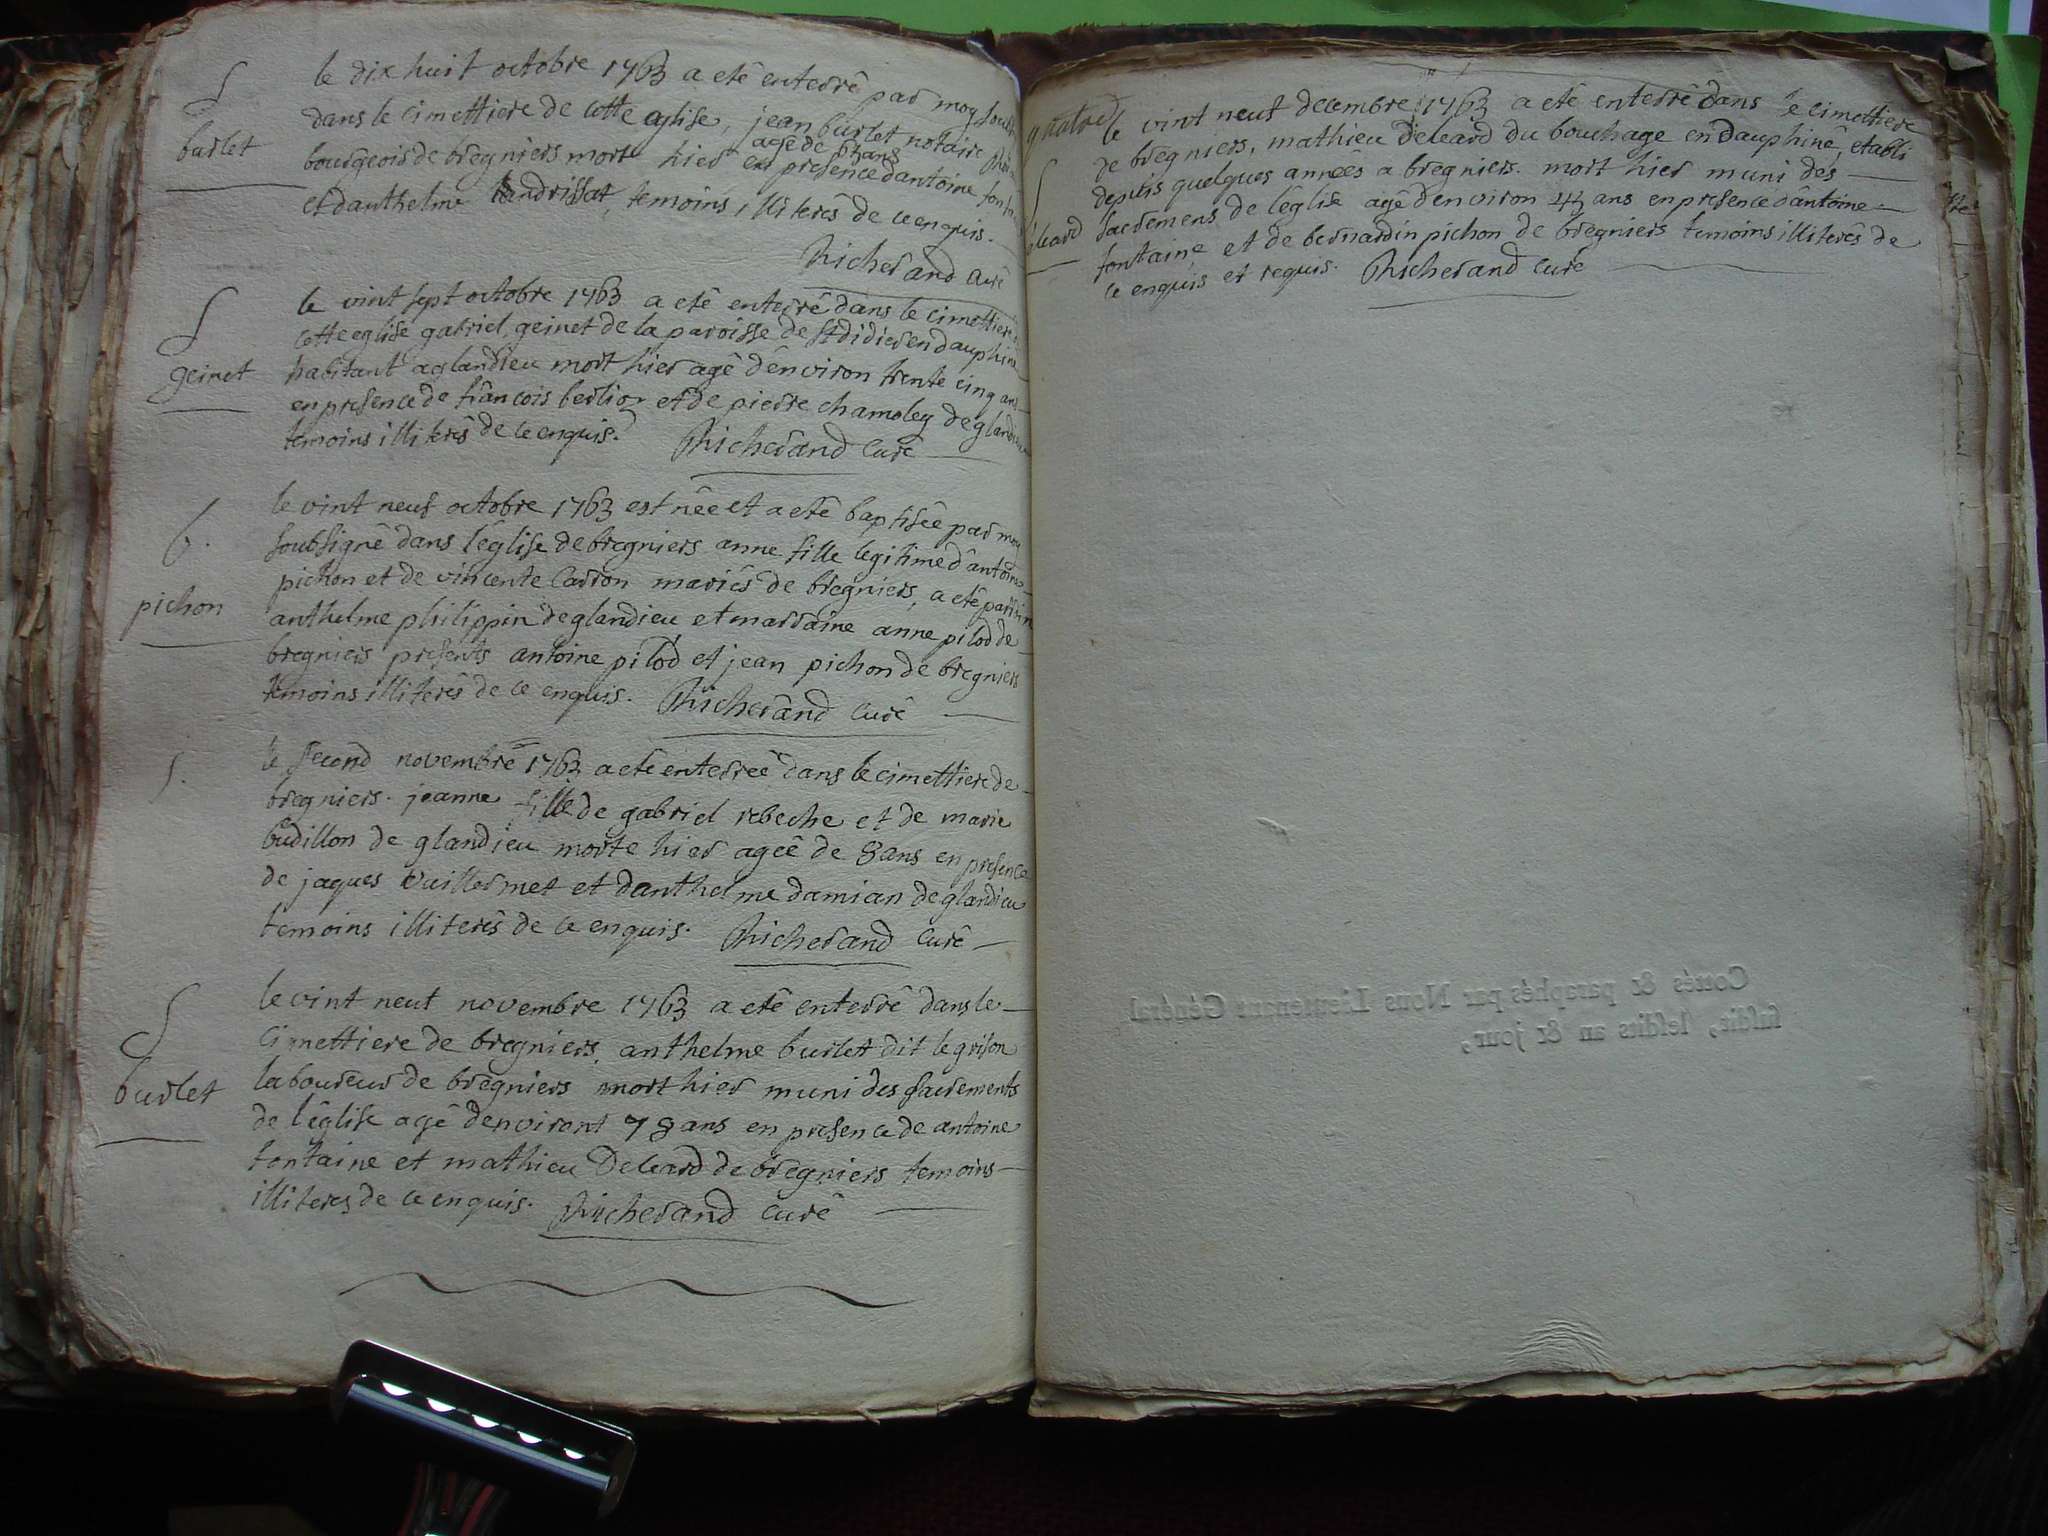 S
burlet
le dix huit octobre 1763 a eté enterré par moy soub
dans le cimettiere de cette eglise jean burlet notaire
agé de ans
bourgeois de bregniers mort hier en presence dantoine fontai
et danthelme temoins illiterés de ce enquis.
Richerand curé
S
geinet
le vint sept octobre 1763 a eté enterré dans le cimettiere
cette eglise gabriel geinet de la paroisse de st didier en dauphiné
habitant a glandieu mort hier agé d'environ trente cinq ans
en presence de francois berlioz et de pierre chamoley de glandieu
temoins illiterés de ce enquis. Richerand curé
b.
pichon
le vint neuf octobre 1763 est née et a eté baptisée par moy
soubsigné dans l'église de bregniers anne fille legitime d'antoine
pichon et de vincente carron mariés de bregniers, a eté parrain
anthelme philippin de glandieu et marraine anne pilod de
bregniers presents antoine pilod et jean pichon de bregniers
temoins illiterés de ce enquis. Richerand curé
S.
le second novembre 1763 a eté enterreé dans le cimettiere de
bregniers. jeanne fille de gabriel rebeche et de marie
budillon de glandieu morte hier ageé de 8 ans en presence
de jaques vuillermet et danthelme damian de glandieu
temoins illiterés de ce enquis. Richerand curé
S
burlet
le vint neuf novembre 1763 a eté enterré dans le
cimettiere de bregniers anthelme burlet dit le grison
laboureur de bregniers mort hier muni des sacrements
de l'église agé denviront 78 ans en presence de antoine
fontaine et mathieu Deleard de bregniers temoins
illiteres de ce enquis. Richerand curé
S
deleard
le vint neuf decembre 1763 a eté enterré dans le cimettiere
de bregniers, mathieu deleard du bouchage en dauphiné, etabli
depuis quelques années a bregniers. mort hier muni des
sacremens de l'église agé denviron 44 ans en presence d'antoine
fontaine et de bernardin pichon de bregniers temoins illiterés de
ce enquis et requis. Richerand curé
Cottés & paraphés par Nous Lieutenant Général
susdit, lesdits an & jour,